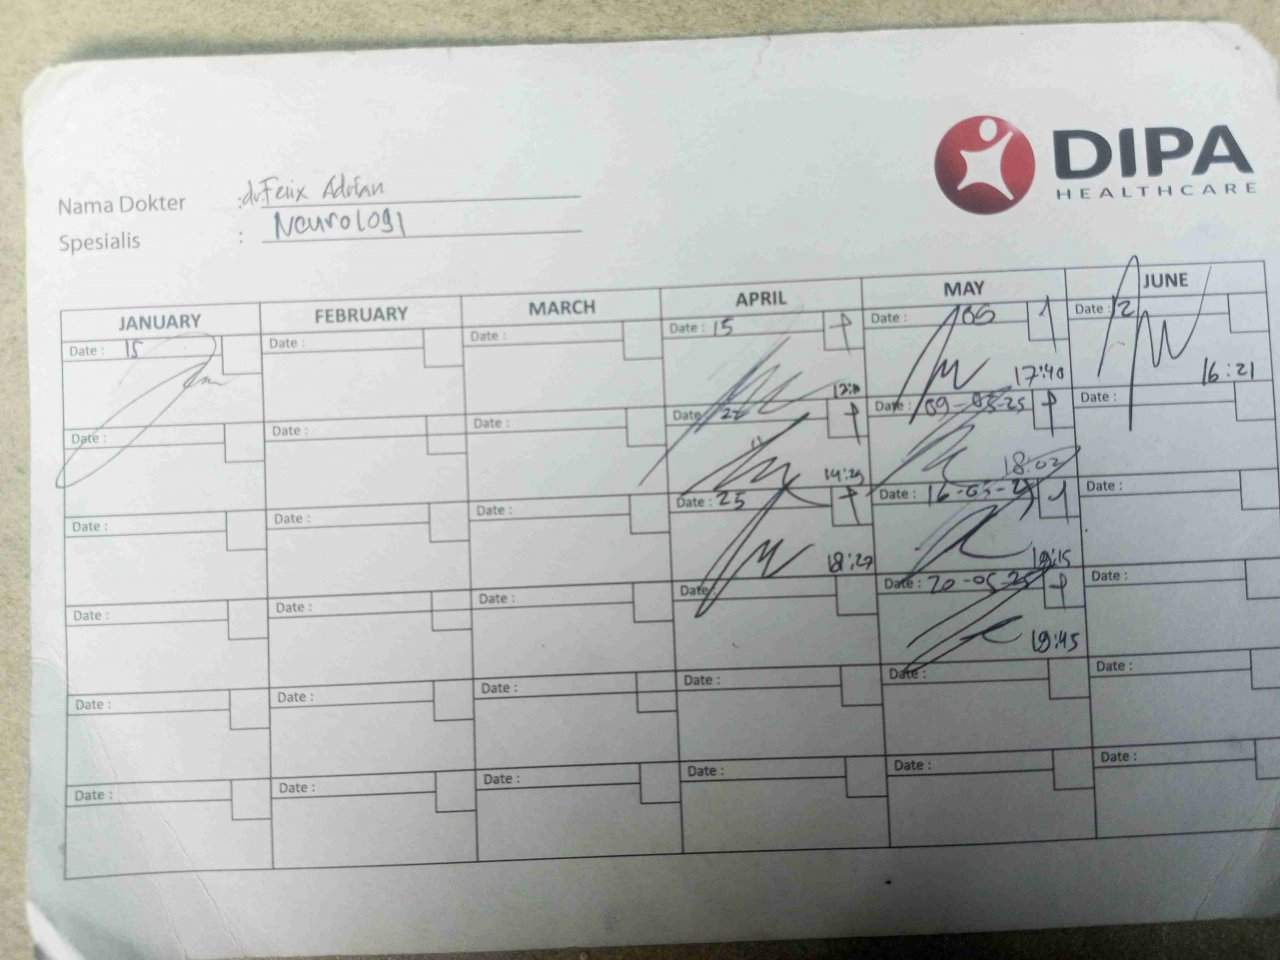 DIPA
HEALTHCARE
Nama Dokter : dr. Felix Adrian
Spesialis : Neurologi
JANUARY FEBRUARY MARCH APRIL MAY JUNE
Date : 15 Date : Date : Date : 15 Date : 06 Date : 12
17:40 16:21
Date : Date : Date : Date : 22 Date : 09-05-25 Date :
14:29 18:02
Date : Date : Date : Date : 25 Date : 16-05-25 Date :
18:27 18:15
Date : Date : Date : Date : Date : 20-05-25 Date :
18:45
Date : Date : Date : Date : Date : Date :
Date : Date : Date : Date : Date : Date :